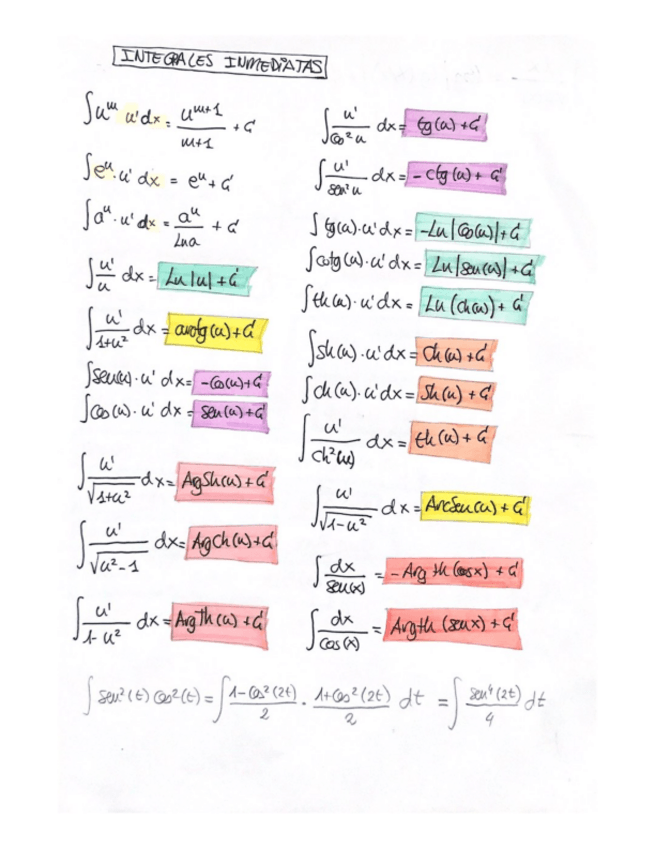 INTEGRALES INMEDIATAS
∫u^m u' dx = u^(m+1)/(m+1) + C
∫e^u · u' dx = e^u + C
∫a^u · u' dx = a^u/Ln a + C
∫u'/u dx = Ln |u| + C
∫u'/(1+u²) dx = arctg(u) + C
∫sen(u) · u' dx = -cos(u) + C
∫cos(u) · u' dx = sen(u) + C
∫u'/√(1+u²) dx = ArgSh(u) + C
∫u'/√(u²-1) dx = ArgCh(u) + C
∫u'/(1-u²) dx = ArgTh(u) + C
∫u'/cos²u dx = tg(u) + C
∫u'/sen²u dx = -ctg(u) + C
∫tg(u) · u' dx = -Ln |cos(u)| + C
∫cotg(u) · u' dx = Ln |sen(u)| + C
∫th(u) · u' dx = Ln (ch(u)) + C
∫Sh(u) · u' dx = Ch(u) + C
∫ch(u) · u' dx = Sh(u) + C
∫u'/Ch²(u) dx = th(u) + C
∫u'/√(1-u²) dx = ArcSen(u) + C
∫dx/sen(x) = -Arg th (cosx) + C
∫dx/cos(x) = Argth (senx) + C
∫sen²(t) cos²(t) = ∫(1-cos²(2t))/2 · (1+cos²(2t))/2 dt = ∫sen⁴(2t)/4 dt